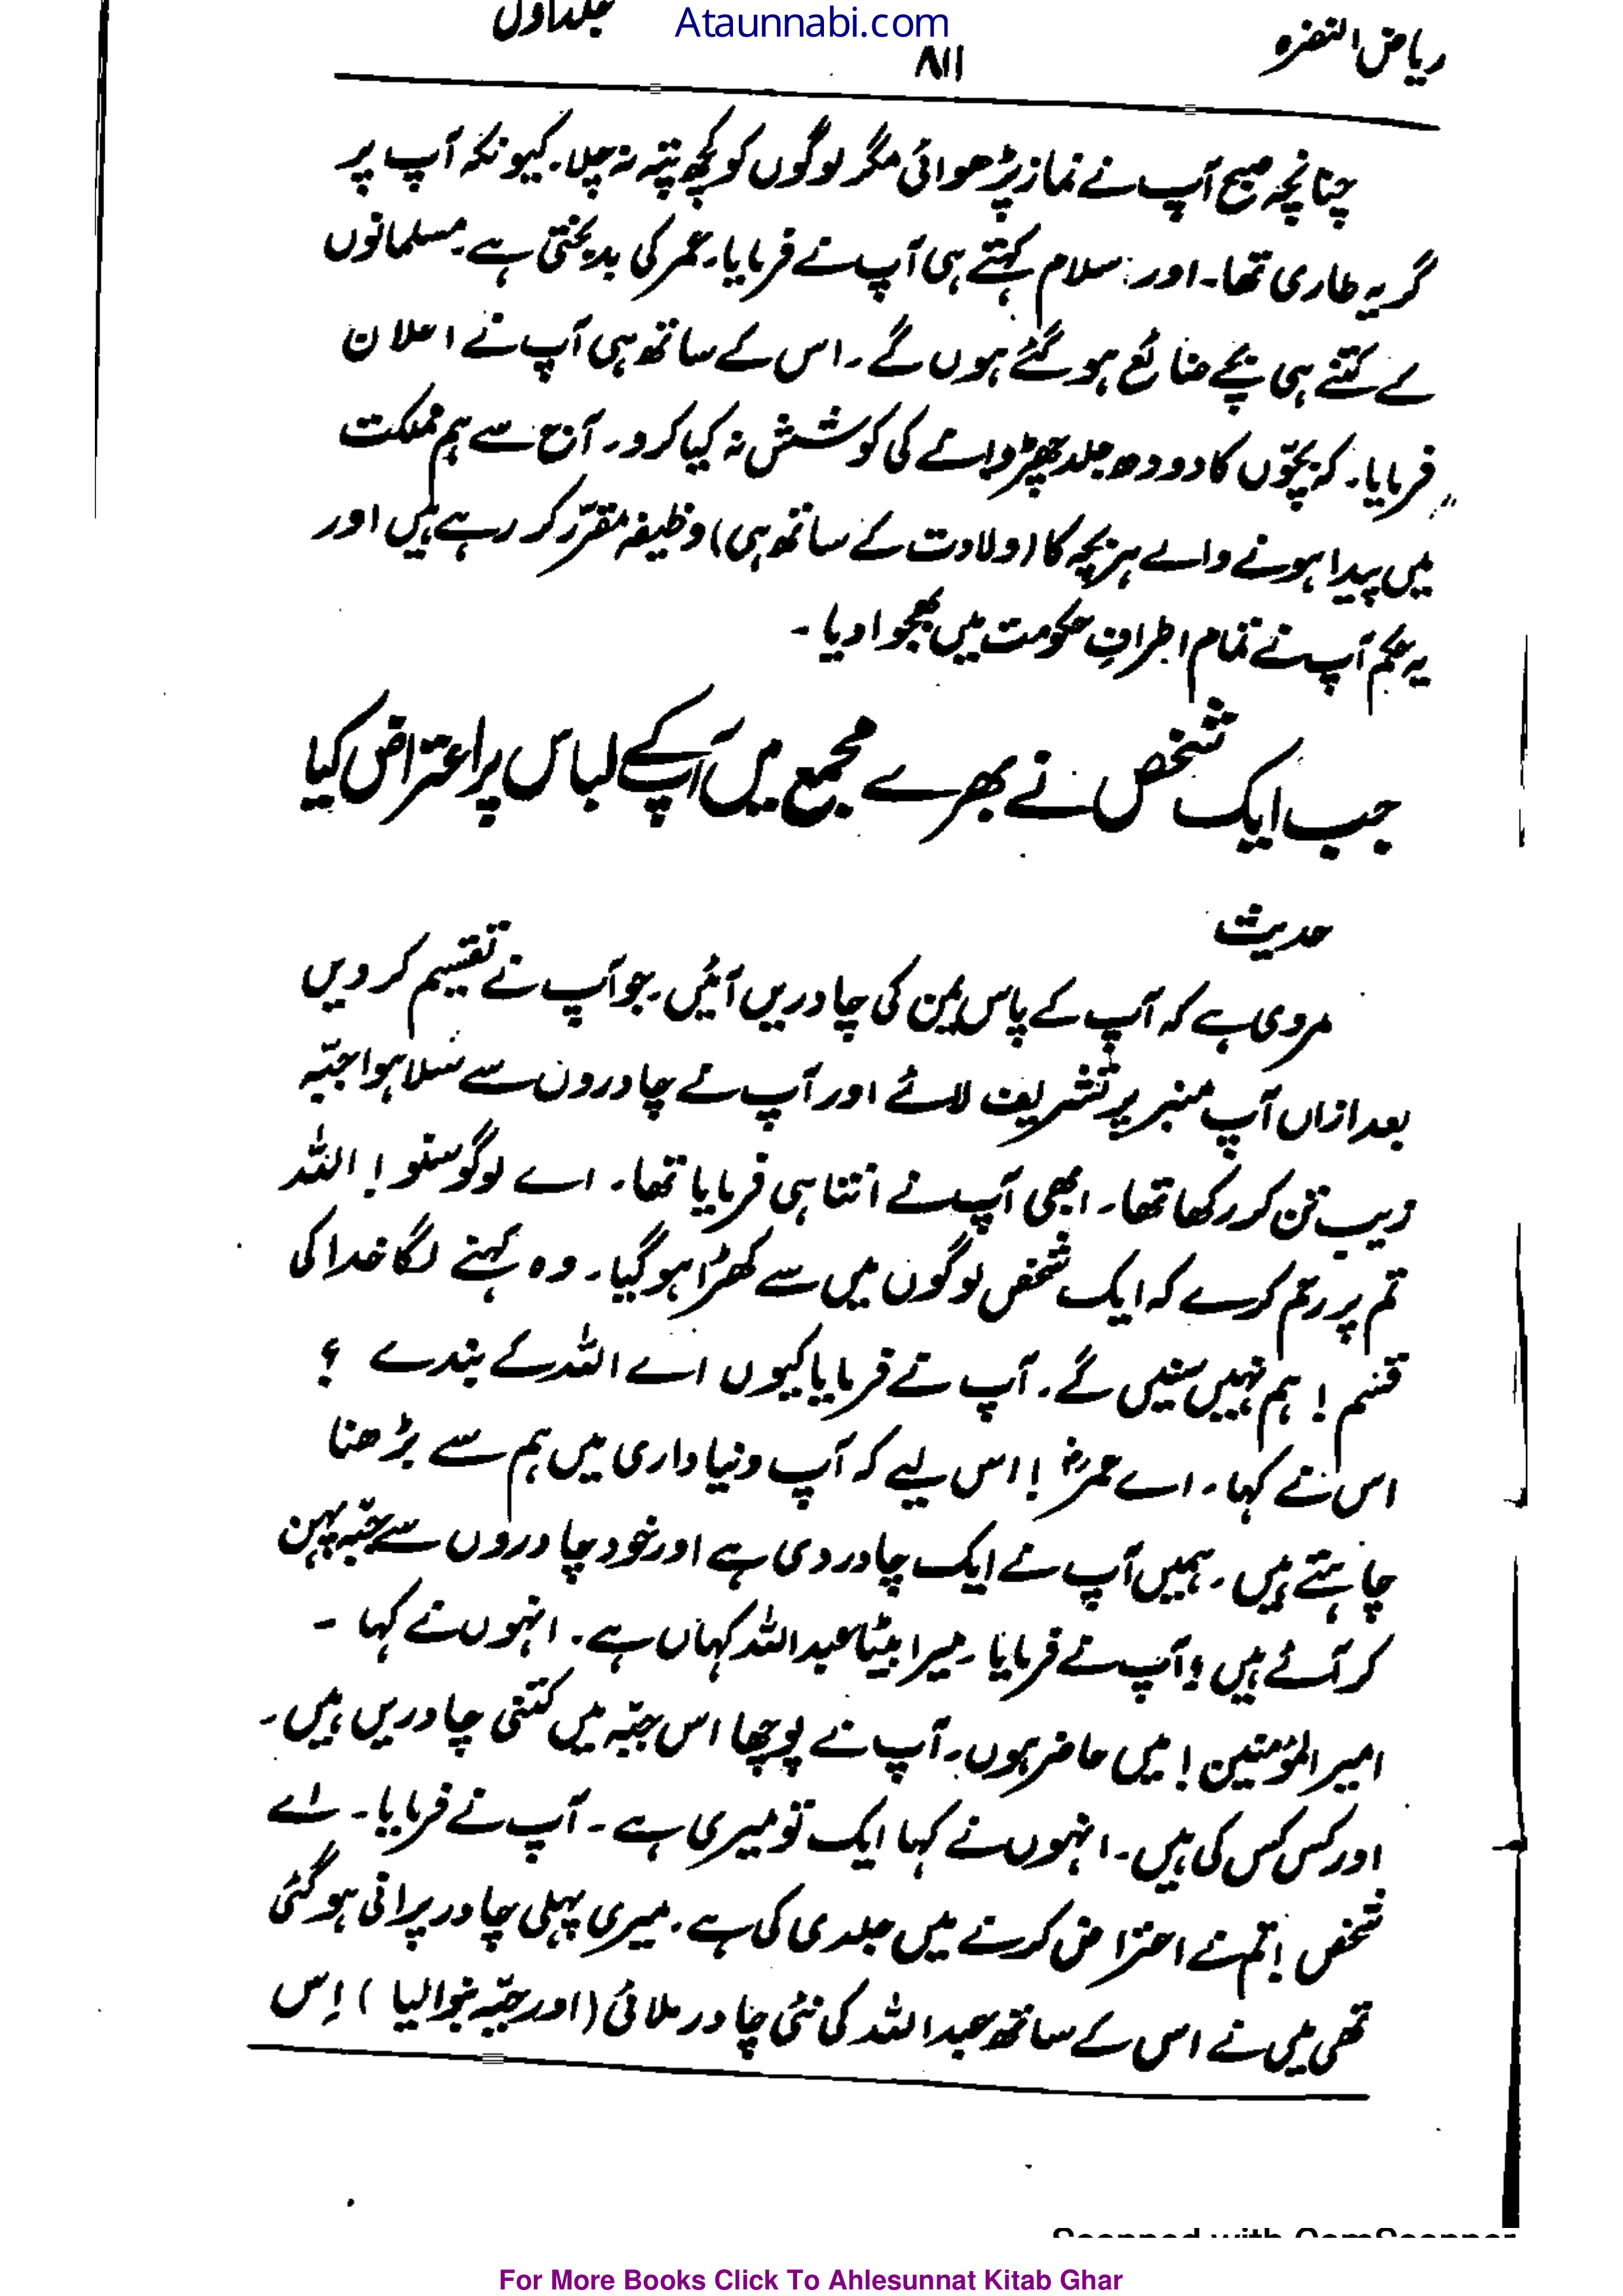 Ataunnabi.com
ریاض النضرہ
۸۱۱
جلد اول
چنانچہ صبح آپ نے نماز پڑھوائی مگر لوگوں کو کچھ پتہ نہ چلا۔ کیونکہ آپ پر
گریہ طاری تھا۔ اور سلام کہتے ہی آپ نے فرمایا۔ عمر کی بدبختی ہے۔ مسلمانوں
کے کتنے ہی بچے ضائع ہو گئے ہوں گے۔ اس کے ساتھ ہی آپ نے اعلان
فرمایا۔ کہ بچّوں کا دودھ جلد چھڑوانے کی کوشش نہ کیا کرو۔ آج سے ہم مملکت
میں پیدا ہونے والے ہر بچہ کا (ولادت کے ساتھ ہی) وظیفہ مقرّر کر رہے ہیں اور
یہ حکم آپ نے تمام اطرافِ حکومت میں بھجوا دیا۔
جب ایک شخص نے بھرے مجمع میں آپ کے لباس پر اعتراض کیا
حدیث
مروی ہے کہ آپ کے پاس یمن کی چادریں آئیں۔ جو آپ نے تقسیم کر دیں
بعد ازاں آپ منبر پر تشریف لائے اور آپ نے چادروں سے سلا ہوا جبّہ
زیب تن کر رکھا تھا۔ ابھی آپ نے اتنا ہی فرمایا تھا۔ اے لوگو سنو! اللہ
تم پر رحم کرے کہ ایک شخص لوگوں میں سے کھڑا ہو گیا۔ وہ کہنے لگا خدا کی
قسم! ہم نہیں سنیں گے۔ آپ نے فرمایا کیوں اے اللہ کے بندے ؟
اس نے کہا۔ اے عمرؓ! اس لیے کہ آپ دنیا داری میں ہم سے بڑھنا
چاہتے ہیں۔ ہمیں آپ نے ایک چادر دی ہے اور خود چادروں سے جبّہ پہن
کر آئے ہیں؟ آپ نے فرمایا۔ میرا بیٹا عبداللہ کہاں ہے۔ انہوں نے کہا ۔
امیر المؤمنین! میں حاضر ہوں۔ آپ نے پوچھا اس جبّہ میں کتنی چادریں ہیں۔
اور کس کس کی ہیں۔ انہوں نے کہا ایک تو میری ہے۔ آپ نے فرمایا۔ اے
شخص! تم نے اعتراض کرنے میں جلدی کی ہے۔ میری پہلی چادر پرانی ہو گئی
تھی میں نے اس کے ساتھ عبداللہ کی نئی چادر ملائی (اور جبّہ بنوا لیا) اِس
Scanned with CamScanner
For More Books Click To Ahlesunnat Kitab Ghar